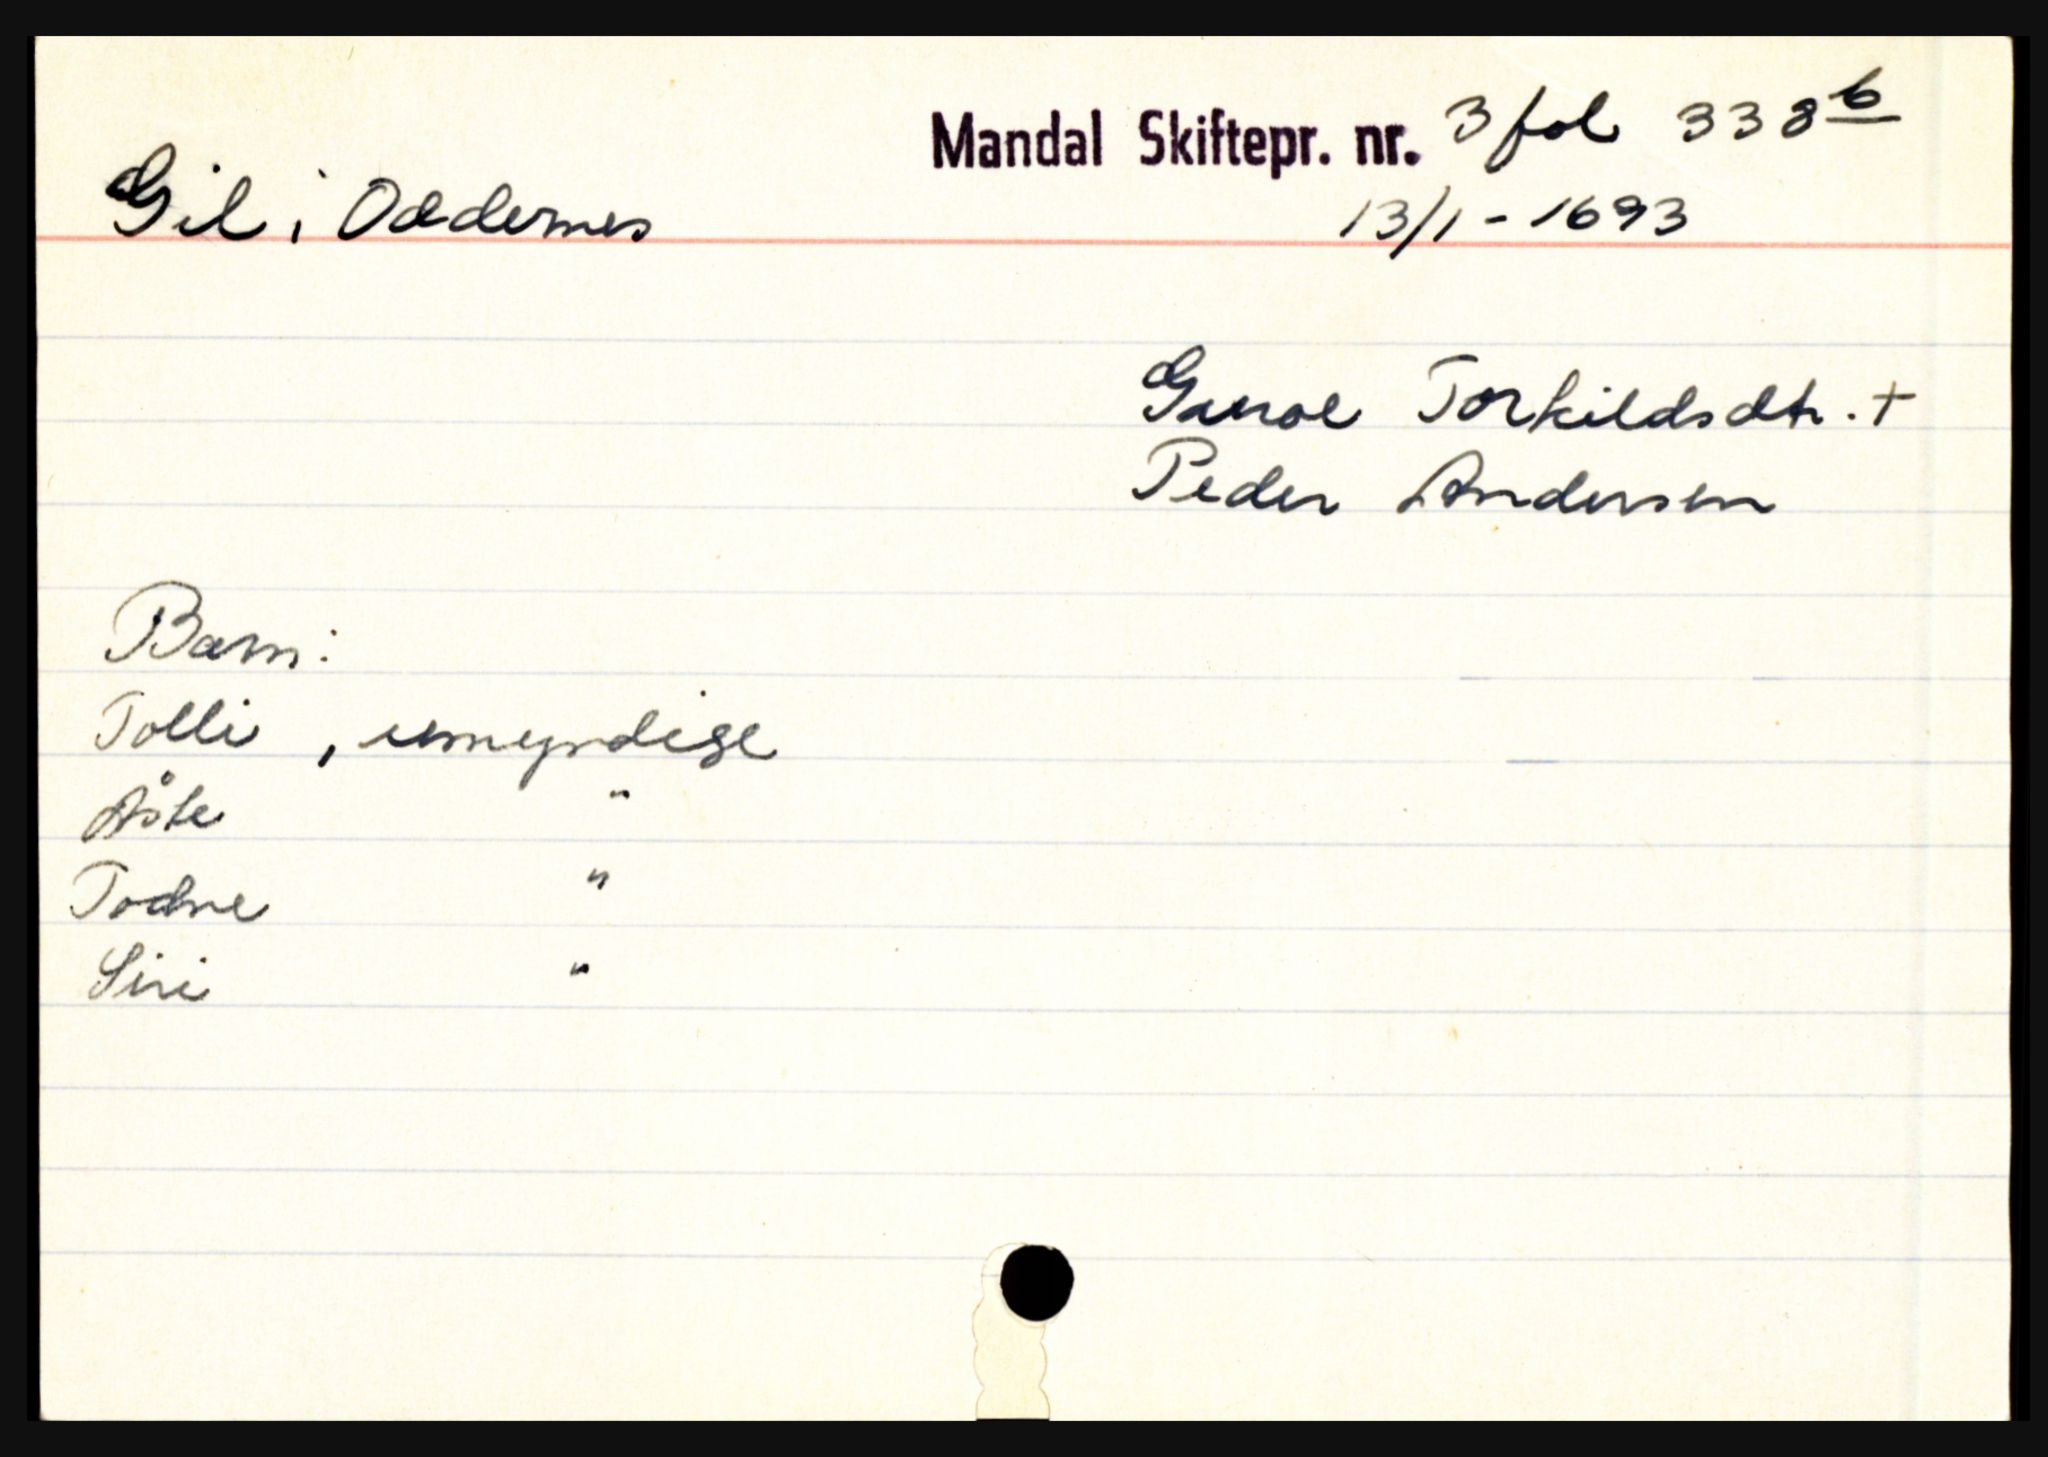 Mandal Skiftepr. nr. 3 fol 338b
Gil i Oddernes
13/1 - 1693
Gunol Torkildsdtr. +
Peder Andersen
Barn:
Tolli , umyndige
Åste "
Todne "
Siri "